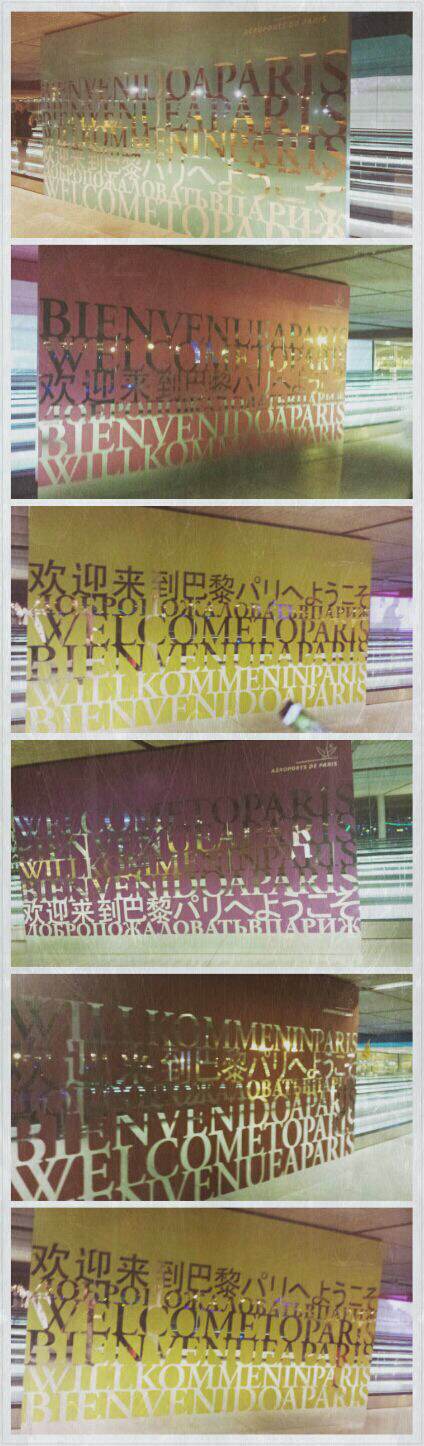 AÉROPORTS DE PARIS
BIENVENIDOAPARIS
BIENVENUEAPARIS
WILLKOMMENINPARIS
欢迎来到巴黎パリへようこそ
ДОБРОПОЖАЛОВАТЬВПАРИЖ
WELCOMETOPARIS
BIENVENUEAPARIS
WELCOMETOPARIS
欢迎来到巴黎パリへようこそ
ДОБРОПОЖАЛОВАТЬВПАРИЖ
BIENVENIDOAPARIS
WILLKOMMENINPARIS
欢迎来到巴黎パリへようこそ
ДОБРОПОЖАЛОВАТЬВПАРИЖ
WELCOMETOPARIS
BIENVENUEAPARIS
WILLKOMMENINPARIS
BIENVENIDOAPARIS
AÉROPORTS DE PARIS
WELCOMETOPARIS
BIENVENUEAPARIS
WILLKOMMENINPARIS
BIENVENIDOAPARIS
欢迎来到巴黎パリへようこそ
ДОБРОПОЖАЛОВАТЬВПАРИЖ
WILLKOMMENINPARIS
欢迎来到巴黎パリへようこそ
ДОБРОПОЖАЛОВАТЬВПАРИЖ
BIENVENIDOAPARIS
WELCOMETOPARIS
BIENVENUEAPARIS
欢迎来到巴黎パリへようこそ
ДОБРОПОЖАЛОВАТЬВПАРИЖ
WELCOMETOPARIS
BIENVENUEAPARIS
WILLKOMMENINPARIS
BIENVENIDOAPARIS